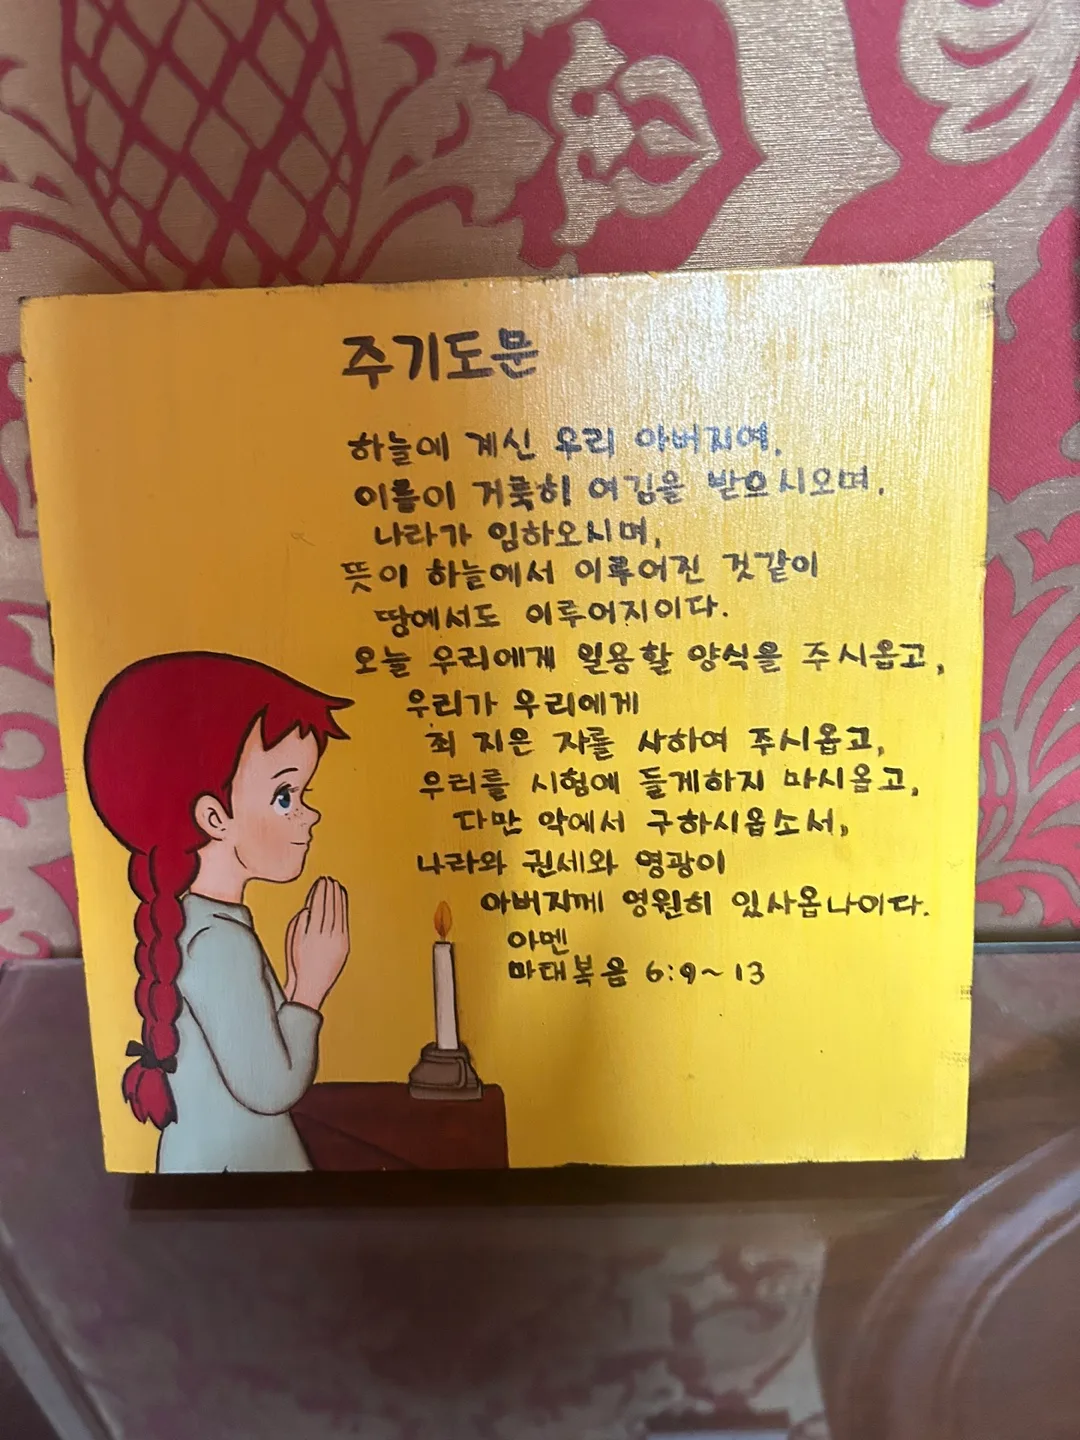 주기도문
하늘에 계신 우리 아버지여,
이름이 거룩히 여김을 받으시오며,
나라가 임하오시며,
뜻이 하늘에서 이루어진 것같이
땅에서도 이루어지이다.
오늘 우리에게 일용할 양식을 주시옵고,
우리가 우리에게
죄 지은 자를 사하여 주시옵고,
우리를 시험에 들게하지 마시옵고,
다만 악에서 구하시옵소서,
나라와 권세와 영광이
아버지께 영원히 있사옵나이다.
아멘
마태복음 6:9~13